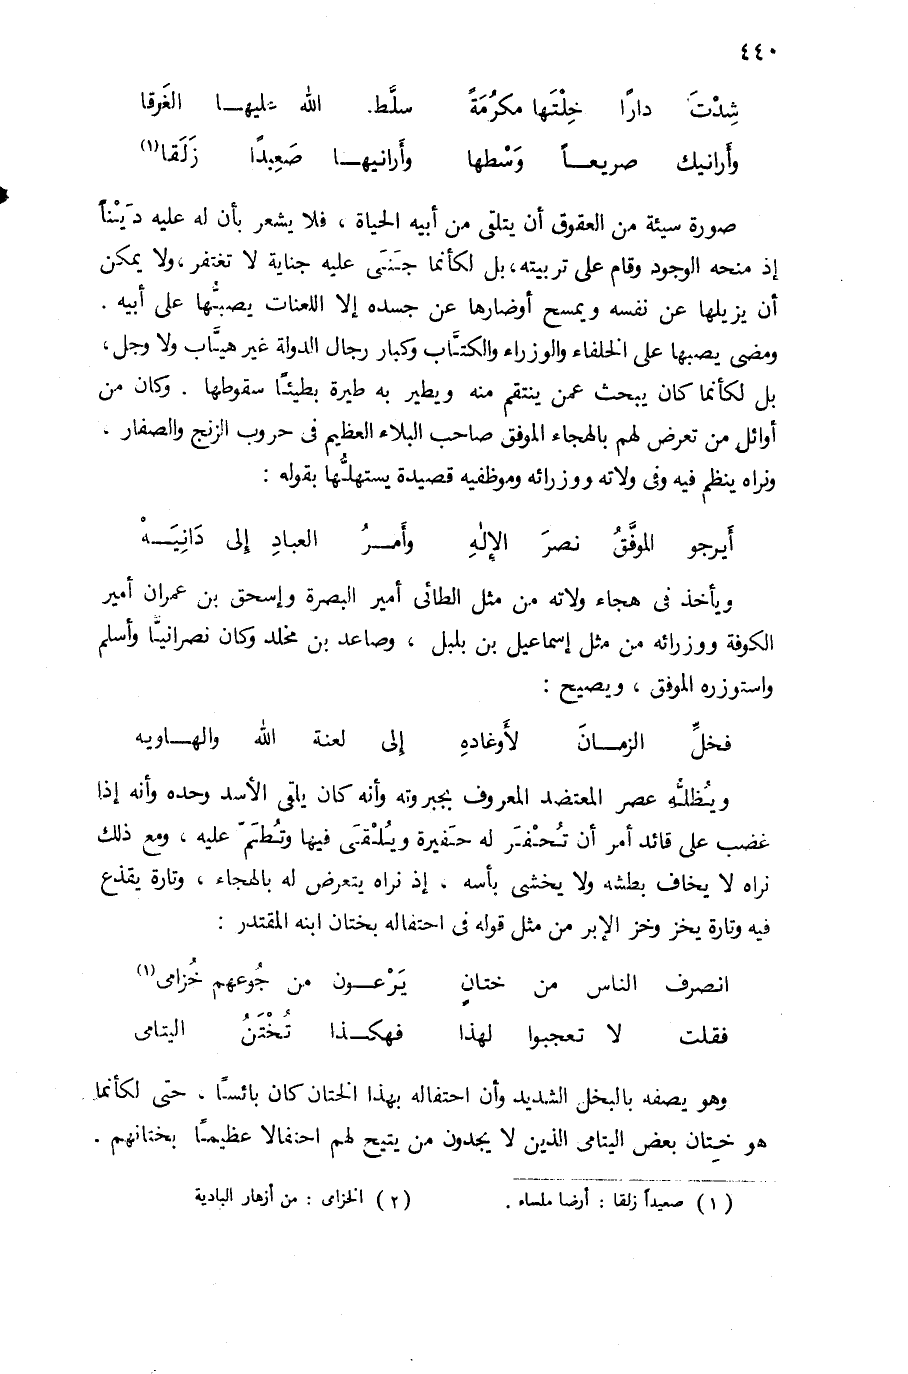 ٤٤٠
شِدْتَ دارًا خِلْتَها مكرُمَةً سلَّط الله عليهـا الغَرقا
وأرانيك صريعـاً وَسْطها وأرانيهـا صَعِيدًا زَلَقا(١)
صورة سيئة من العقوق أن يتلقى من أبيه الحياة ، فلا يشعر بأن له عليه دَيْناً
إذ منحه الوجود وقام على تربيته، بل لكأنما جَنَى عليه جناية لا تغتفر ، ولا يمكن
أن يزيلها عن نفسه ويمسح أوضارها عن جسده إلا اللعنات يصبُّها على أبيه .
ومضى يصبها على الخلفاء والوزراء والكتَّاب وكبار رجال الدولة غير هيَّاب ولا وجل،
بل لكأنما كان يبحث عمن ينتقم منه ويطير به طيرة بطيئًا سقوطها . وكان من
أوائل من تعرض لهم بالهجاء الموفق صاحب البلاء العظيم فى حروب الزنج والصفار .
ونراه ينظم فيه وفى ولاته ووزرائه وموظفيه قصيدة يستهلُّها بقوله :
أَيرجو الموفَّقُ نصرَ الإِلٰهِ وأَمـرُ العبادِ إلى دَانِيَـهْ
ويأخذ فى هجاء ولاته من مثل الطائى أمير البصرة وإسحق بن عمران أمير
الكوفة ووزرائه من مثل إسماعيل بن بلبل ، وصاعد بن مخلد وكان نصرانيًّا وأسلم
واستوزره الموفق ، ويصيح :
فخلِّ الزمـانَ لأَوغادهِ إلى لعنة الله والهـاويه
ويُظلُّه عصر المعتضد المعروف بجبروته وأنه كان يلقى الأسد وحده وأنه إذا
غضب على قائد أمر أن تُحْفَر له حَفيرة ويُلْقَى فيها وتُطَمّ عليه ، ومع ذلك
نراه لا يخاف بطشه ولا يخشى بأسه . إذ نراه يتعرض له بالهجاء ، وتارة يقذع
فيه وتارة يخز وخز الإبر من مثل قوله فى احتفاله بختان ابنه المقتدر :
انصرف الناس من ختانٍ يَرْعـون من جُوعهم خُزامى(١)
فقلت لا تعجبوا لهذا فهكـذا تُخْتَنُ اليتامى
وهو يصفه بالبخل الشديد وأن احتفاله بهذا الختان كان بائسًا . حتى لكأنما
هو خِتان بعض اليتامى الذين لا يجدون من يتيح لهم احتفالا عظيمًا بختانهم .
(١) صعيداً زلقا : أرضا ملساء . (٢) الخزامى : من أزهار البادية